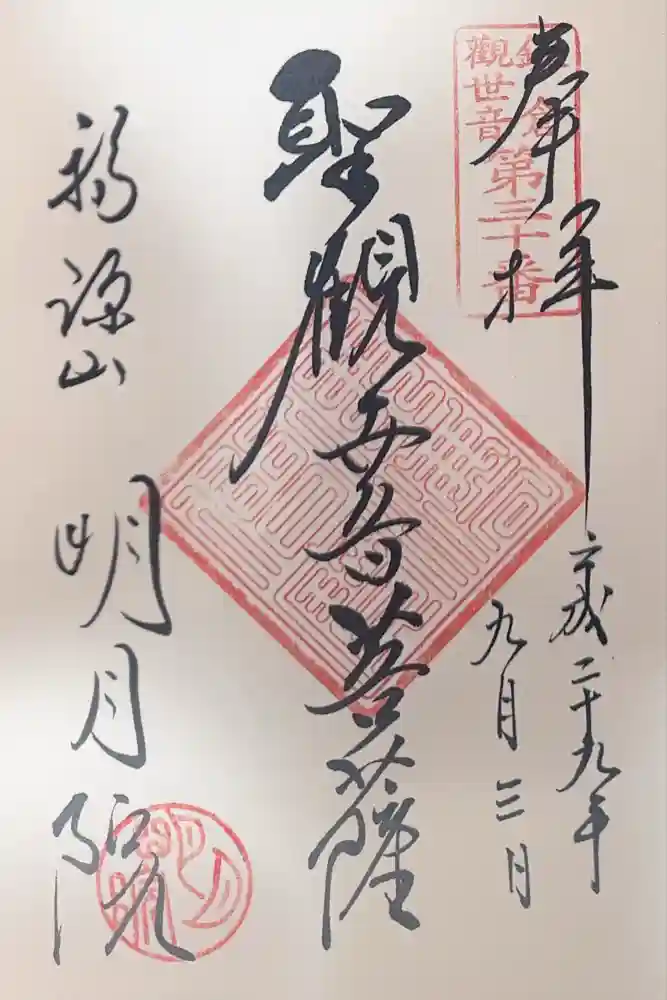 奉拝
平成二十九年
九月三日
鎌倉
觀世音
第三十番
聖観世音菩薩
福源山
明月院